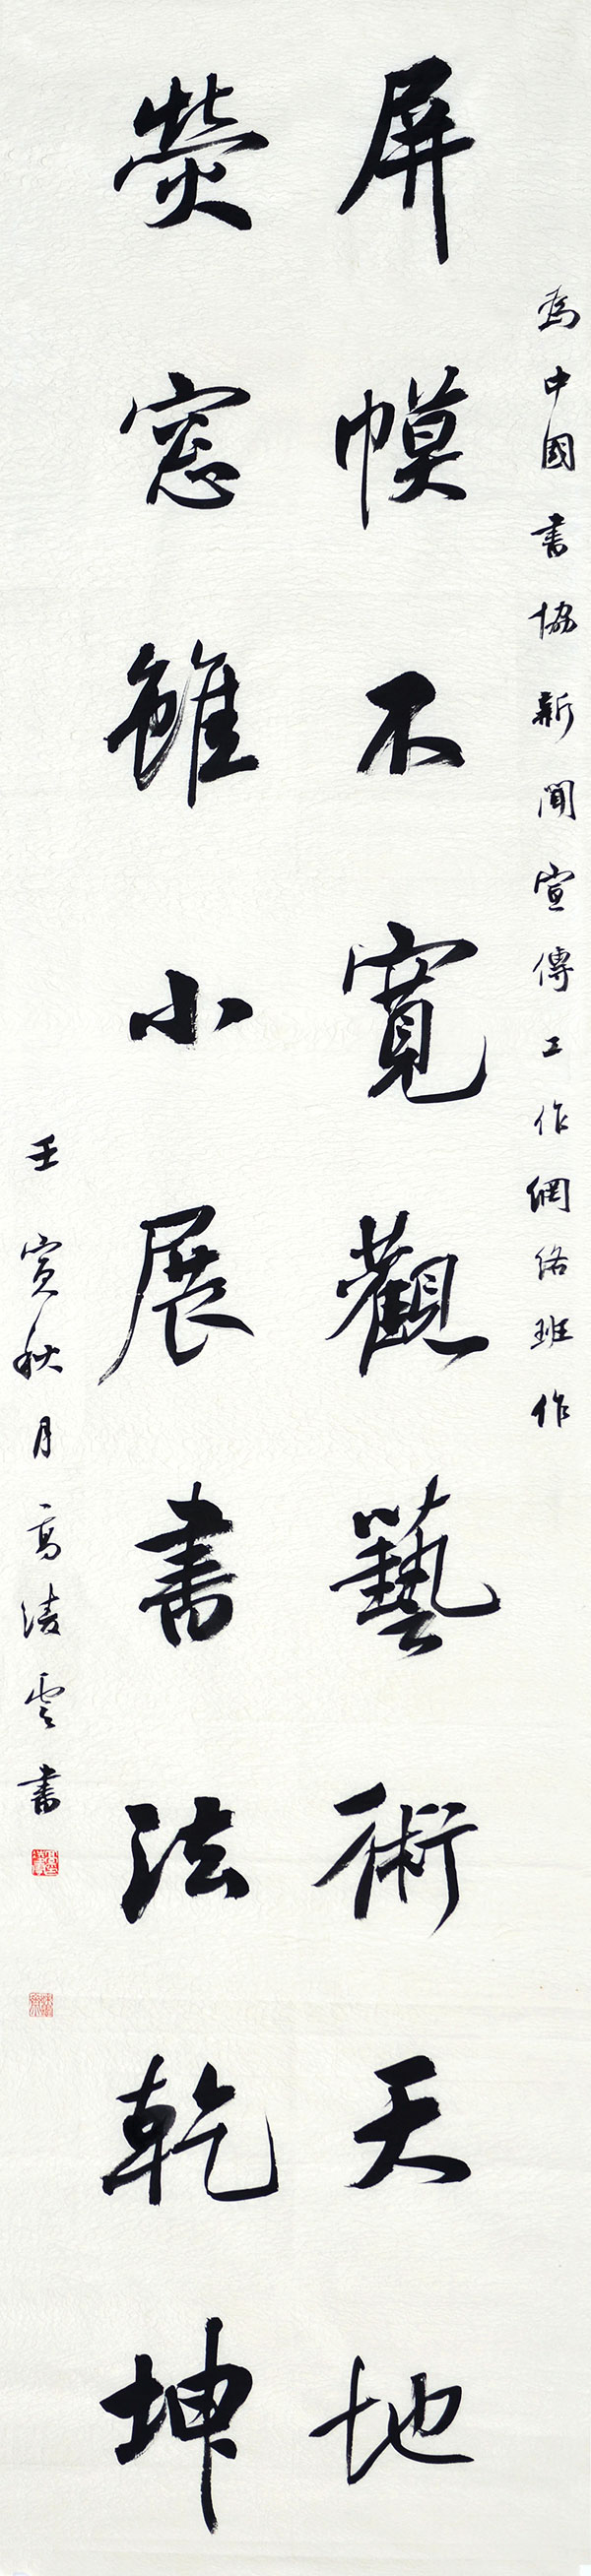 為中國書協新聞宣傳工作網络班作
屏幙不寬觀藝術天地
熒窓雖小展書法乾坤
壬寅秋月高淩雲書